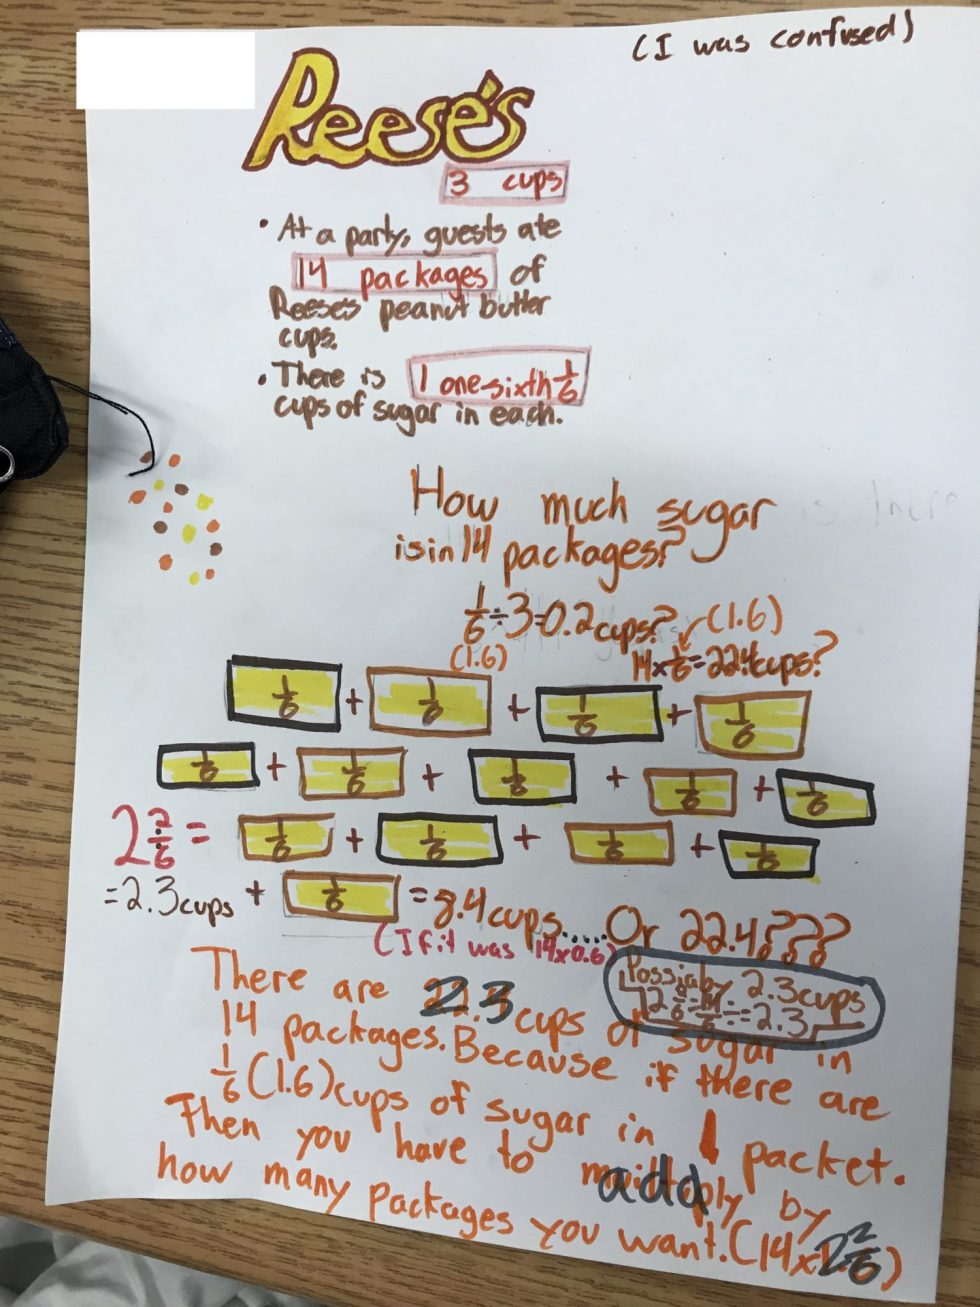 (I was confused)
Reese's
3 cups
• At a party, guests ate
14 packages of
Reese's peanut butter
cups.
• There is 1 one-sixth 1/6
cups of sugar in each.
How much sugar
is in 14 packages?
1/6 ÷ 3 = 0.2 cups? (1.6)
(1.6) 14 x 1/6 = 22.4 cups?
1/6 + 1/6 + 1/6 + 1/6
1/6 + 1/6 + 1/6 + 1/6 + 1/6
2 2/6 = 1/6 + 1/6 + 1/6 + 1/6
= 2.3 cups + 1/6 = 8.4 cups..... Or 22.4???
(If it was 14x0.6)
2.3 cups
2 2/6 = 14/6 = 2.3
There are 2.3 cups of sugar in
14 packages. Because if there are
1/6 (1.6) cups of sugar in 1 packet.
Then you have to add by
how many packages you want. (14x 2 2/6)